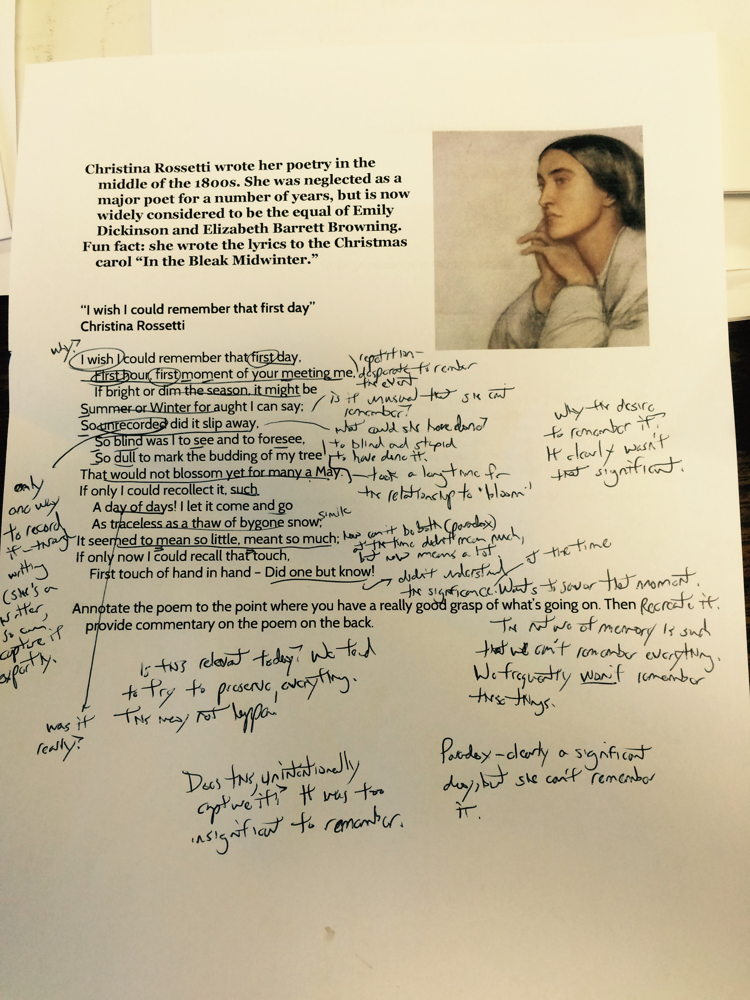 Christina Rossetti wrote her poetry in the
middle of the 1800s. She was neglected as a
major poet for a number of years, but is now
widely considered to be the equal of Emily
Dickinson and Elizabeth Barrett Browning.
Fun fact: she wrote the lyrics to the Christmas
carol “In the Bleak Midwinter.”
“I wish I could remember that first day”
Christina Rossetti
why?
I wish I could remember that first day,
First hour, first moment of your meeting me,
If bright or dim the season, it might be
Summer or Winter for aught I can say;
So unrecorded did it slip away,
So blind was I to see and to foresee,
So dull to mark the budding of my tree
That would not blossom yet for many a May.
If only I could recollect it, such
A day of days! I let it come and go
As traceless as a thaw of bygone snow;
It seemed to mean so little, meant so much;
If only now I could recall that touch,
First touch of hand in hand – Did one but know!
repetition-
desperate to
the event
is it unusual that she can't
remember?
what could she have done?
to blind and stupid
to have done it.
took a long time for
the relationship to "bloom"
simile
how can it be both (paradox)
at the time didn't mean much,
but now means a lot
didn't understand
the significance.
at the time
Wants to savor that moment.
Recreate it.
Why the desire
to remember it?
It clearly wasn't
that significant.
only
one way
to record
it - through
writing
(she's a
writer,
so can
capture it
expertly.
was it
really?
Annotate the poem to the point where you have a really good grasp of what’s going on. Then
provide commentary on the poem on the back.
The nature of memory is such
that we can't remember everything.
We frequently won't remember
these things.
Is this relevant today? We tend
to try to preserve everything.
This may not happen
Does this unintentionally
capture it? It was too
insignificant to remember.
Paradox - clearly a significant
day, but she can't remember
it.